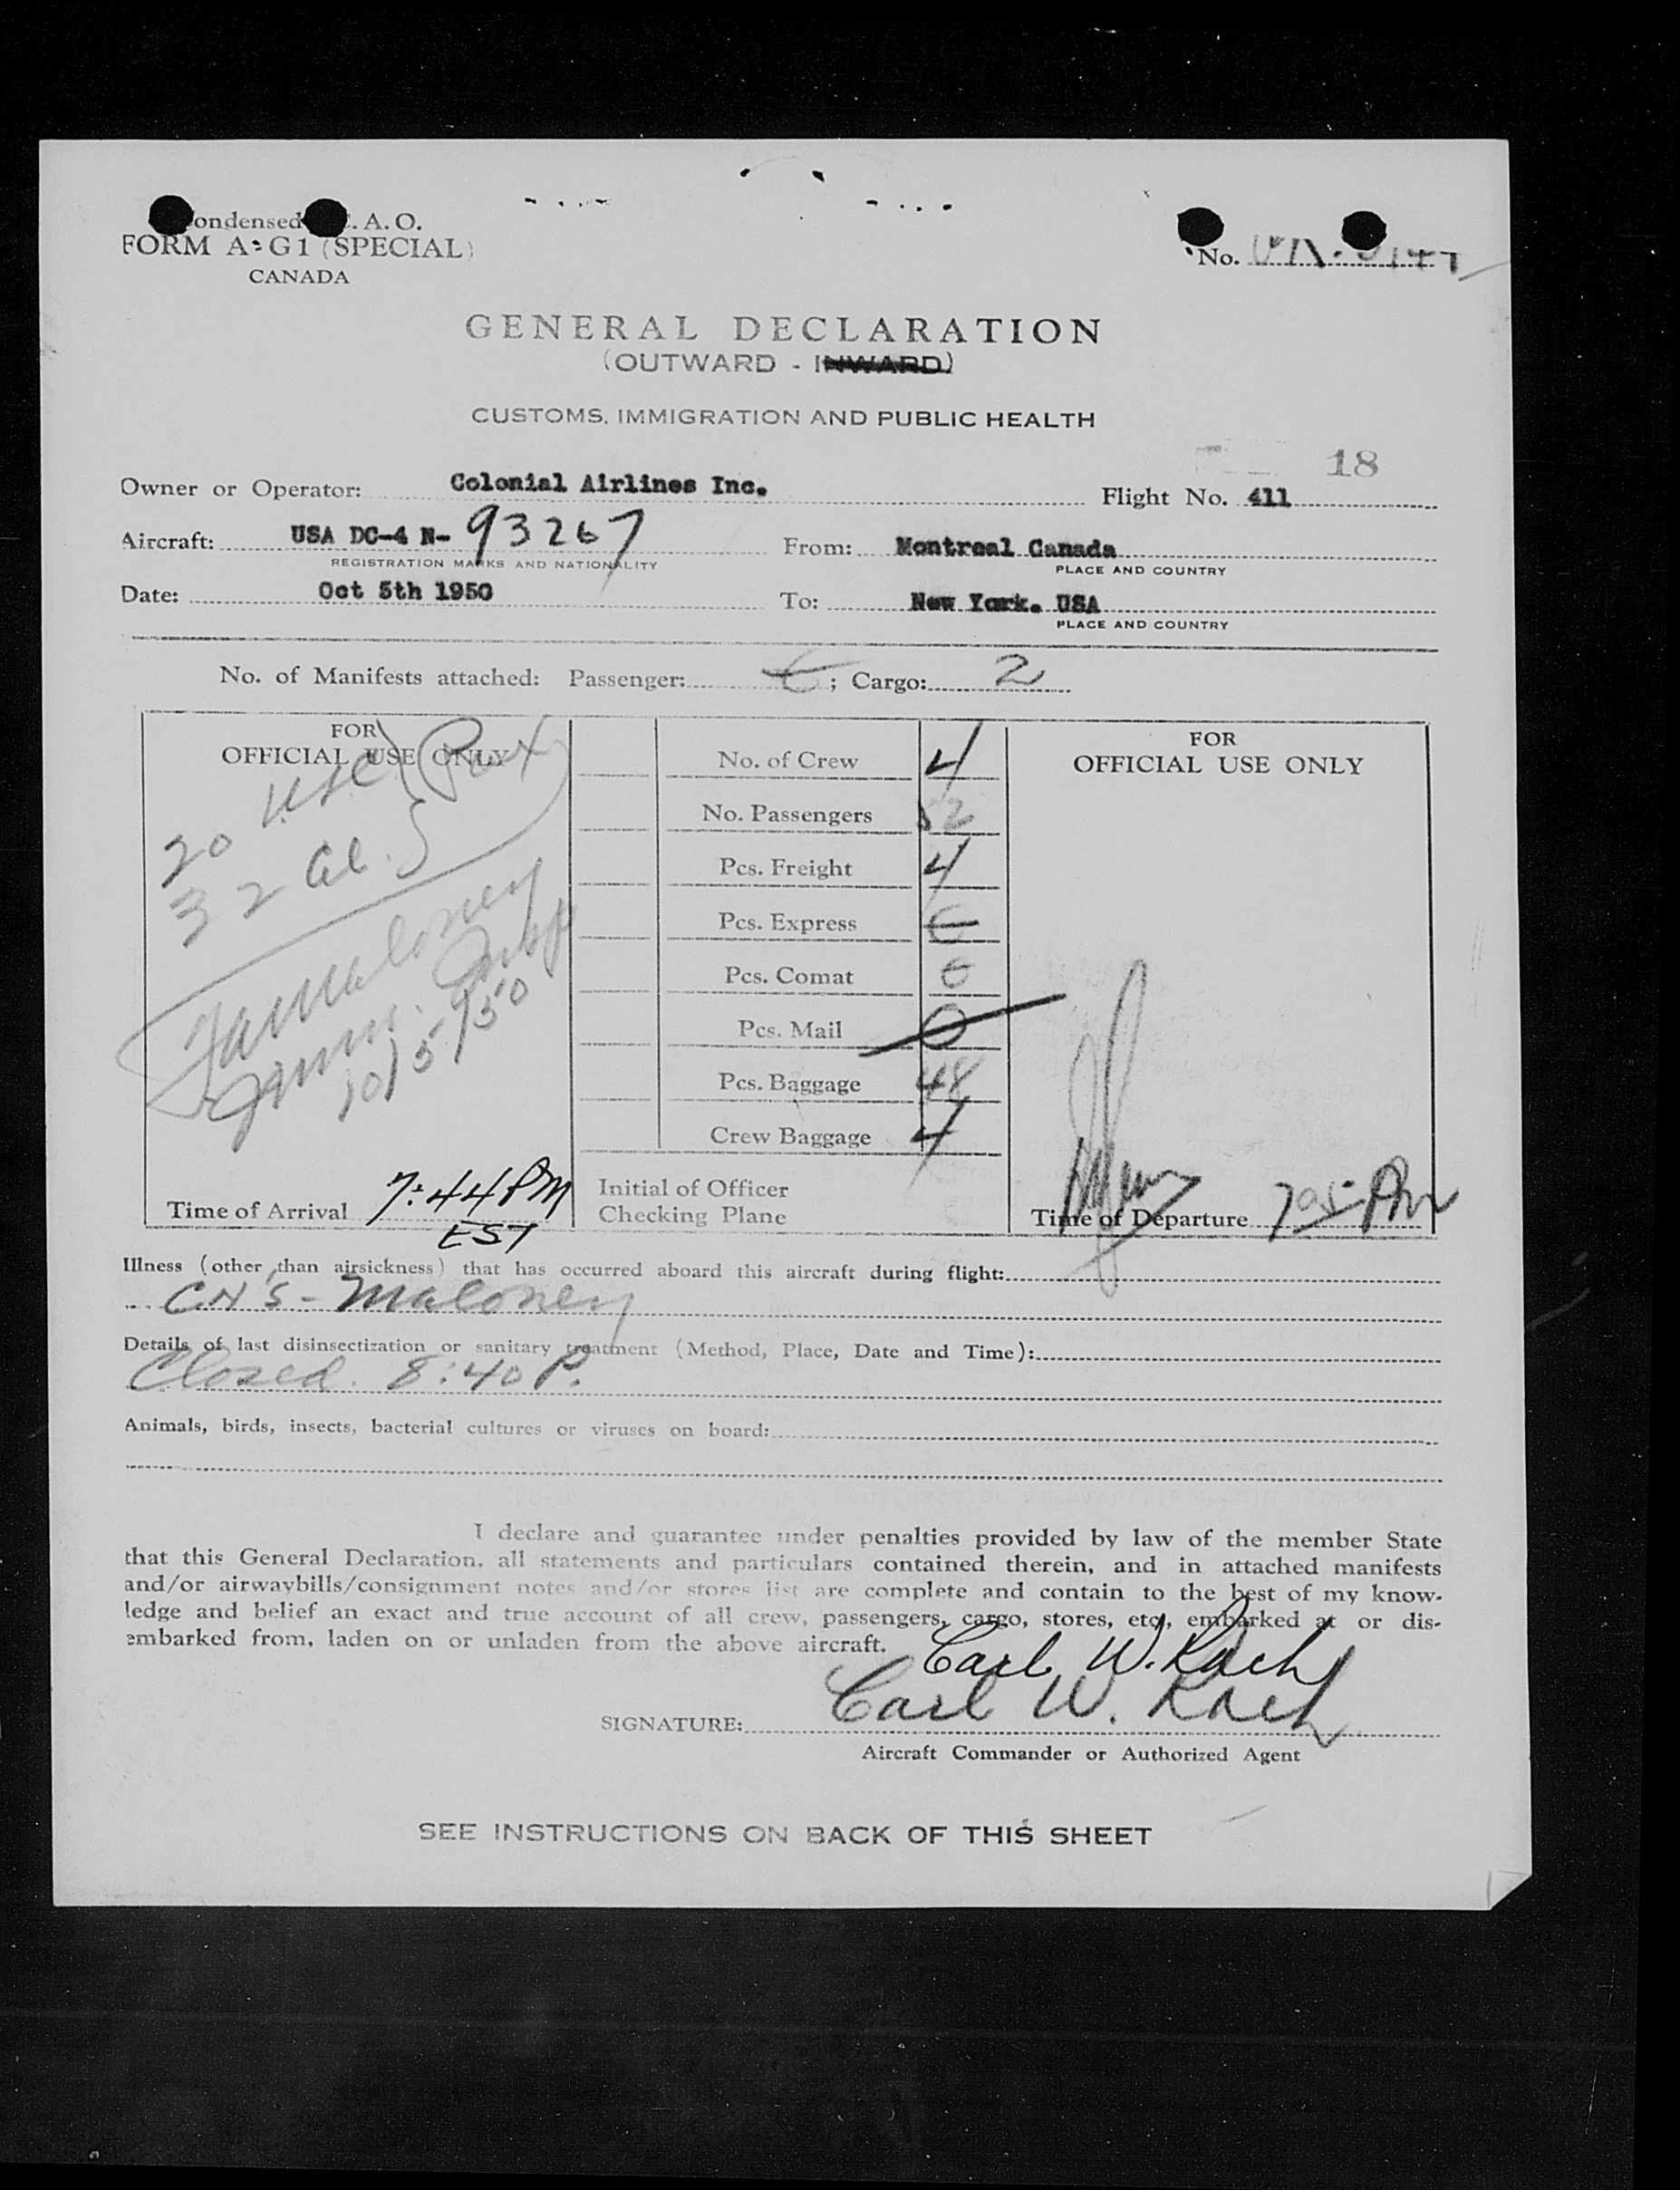 ondensed . A. O.
FORM A-G1 (SPECIAL)
CANADA
No.
GENERAL DECLARATION
(OUTWARD - INWARD)
CUSTOMS, IMMIGRATION AND PUBLIC HEALTH
18
Owner or Operator: Colonial Airlines Inc. Flight No. 411
Aircraft: USA DC-4 N- 93267 From: Montreal Canada
REGISTRATION MARKS AND NATIONALITY PLACE AND COUNTRY
Date: Oct 5th 1950 To: New York. USA
PLACE AND COUNTRY
No. of Manifests attached: Passenger: ; Cargo: 2
FOR
OFFICIAL USE ONLY
20 USC
32 al.
Maloney
Imm. Insp
10/5/50
Time of Arrival 7:44 PM
EST
No. of Crew 4
No. Passengers 52
Pcs. Freight 4
Pcs. Express
Pcs. Comat
Pcs. Mail 0
Pcs. Baggage 48
Crew Baggage 4
Initial of Officer
Checking Plane
FOR
OFFICIAL USE ONLY
Time of Departure 705 PM
Illness (other than airsickness) that has occurred aboard this aircraft during flight:
CNS - Maloney
Details of last disinsectization or sanitary treatment (Method, Place, Date and Time):
Closed. 8:40 P.
Animals, birds, insects, bacterial cultures or viruses on board:
I declare and guarantee under penalties provided by law of the member State
that this General Declaration, all statements and particulars contained therein, and in attached manifests
and/or airwaybills/consignment notes and/or stores list are complete and contain to the best of my know-
ledge and belief an exact and true account of all crew, passengers, cargo, stores, etc, embarked at or dis-
embarked from, laden on or unladen from the above aircraft.
Carl W. Koch
SIGNATURE: Carl W. Koch
Aircraft Commander or Authorized Agent
SEE INSTRUCTIONS ON BACK OF THIS SHEET